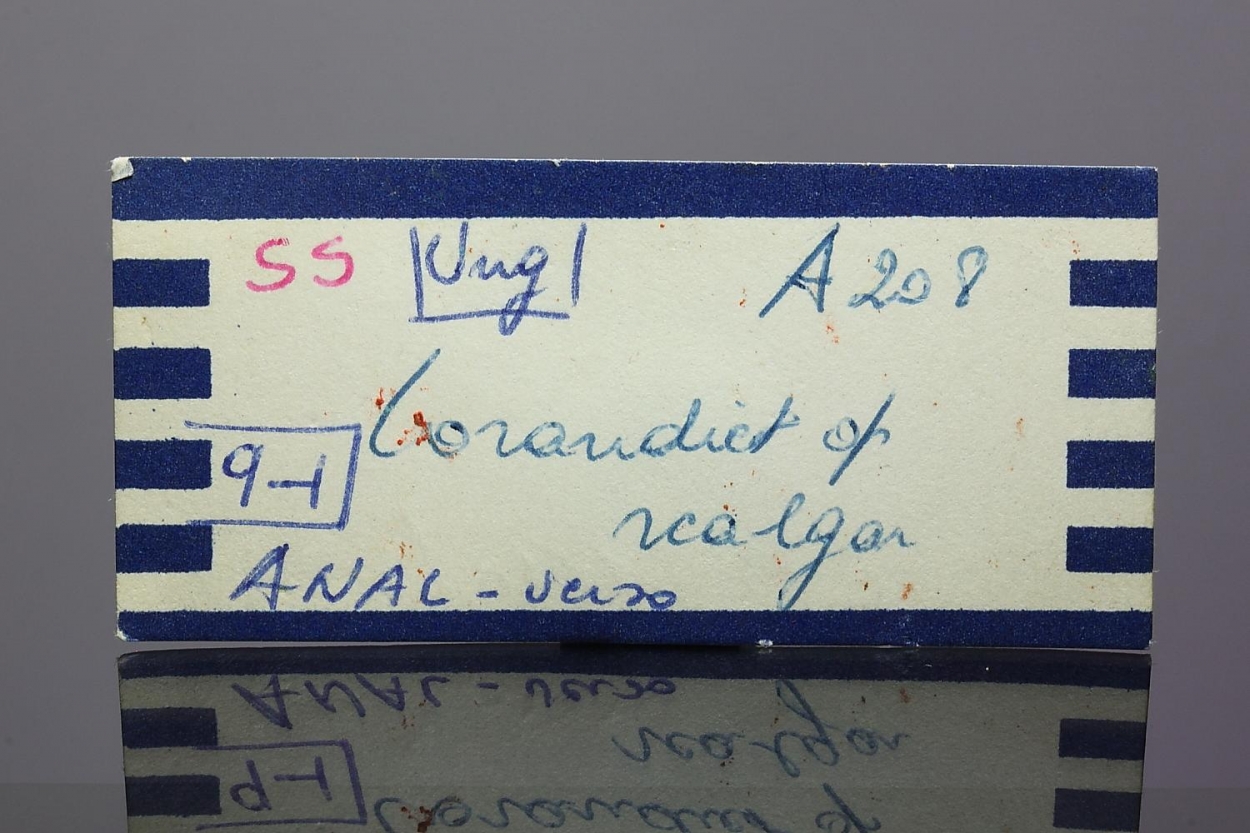 SS |Ung| A 208
Corandiet op
realgar
9-1
ANAL - verso